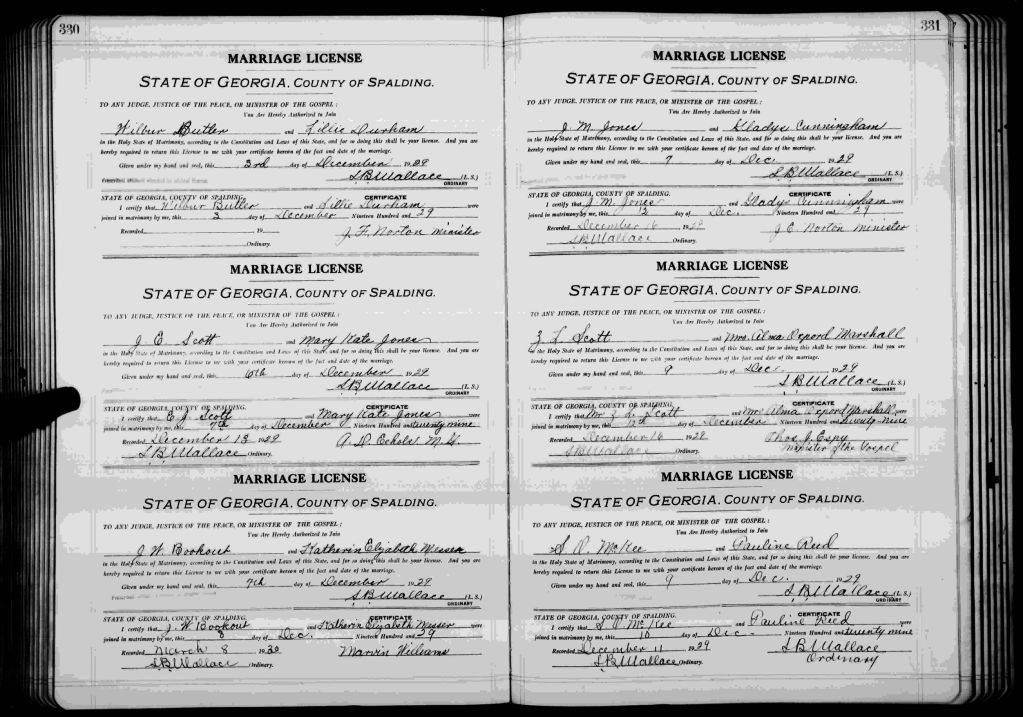 330
MARRIAGE LICENSE
STATE OF GEORGIA, COUNTY OF SPALDING.
TO ANY JUDGE, JUSTICE OF THE PEACE, OR MINISTER OF THE GOSPEL:
You Are Hereby Authorized to Join
Wilbur Butler and Lillie Durham
in the Holy State of Matrimony, according to the Constitution and Laws of this State, and for so doing this shall be your license. And you are
hereby required to return this License to me with your certificate hereon of the fact and date of the marriage.
Given under my hand and seal, this 3rd day of December 1929
S.B. Wallace (L. S.)
ORDINARY
STATE OF GEORGIA, COUNTY OF SPALDING. CERTIFICATE
I certify that Wilbur Butler and Lillie Durham were
joined in matrimony by me, this 3 day of December Nineteen Hundred and 29
Recorded 19 J. F. Norton minister
Ordinary.
MARRIAGE LICENSE
STATE OF GEORGIA, COUNTY OF SPALDING.
TO ANY JUDGE, JUSTICE OF THE PEACE, OR MINISTER OF THE GOSPEL:
You Are Hereby Authorized to Join
J. E. Scott and Mary Kate Jones
in the Holy State of Matrimony, according to the Constitution and Laws of this State, and for so doing this shall be your license. And you are
hereby required to return this License to me with your certificate hereon of the fact and date of the marriage.
Given under my hand and seal, this 6th day of December 1929
S.B. Wallace (L. S.)
ORDINARY
STATE OF GEORGIA, COUNTY OF SPALDING. CERTIFICATE
I certify that E. J. Scott and Mary Kate Jones were
joined in matrimony by me, this 7th day of December Nineteen Hundred and twenty nine
Recorded December 13 1929 Echols M. G.
S.B. Wallace Ordinary.
MARRIAGE LICENSE
STATE OF GEORGIA, COUNTY OF SPALDING.
TO ANY JUDGE, JUSTICE OF THE PEACE, OR MINISTER OF THE GOSPEL:
You Are Hereby Authorized to Join
J. W. Bookout and Katherin Elizabeth Messer
in the Holy State of Matrimony, according to the Constitution and Laws of this State, and for so doing this shall be your license. And you are
hereby required to return this License to me with your certificate hereon of the fact and date of the marriage.
Given under my hand and seal, this 7th day of December 1929
S.B. Wallace (L. S.)
ORDINARY
STATE OF GEORGIA, COUNTY OF SPALDING. CERTIFICATE
I certify that J. W. Bookout and Katherin Elizabeth Messer were
joined in matrimony by me, this 8 day of Dec. Nineteen Hundred and 29
Recorded March 8 1930 Marvin Williams
S.B. Wallace Ordinary.
331
MARRIAGE LICENSE
STATE OF GEORGIA, COUNTY OF SPALDING.
TO ANY JUDGE, JUSTICE OF THE PEACE, OR MINISTER OF THE GOSPEL:
You Are Hereby Authorized to Join
J. M. Jones and Gladys Cunningham
in the Holy State of Matrimony, according to the Constitution and Laws of this State, and for so doing this shall be your license. And you are
hereby required to return this License to me with your certificate hereon of the fact and date of the marriage.
Given under my hand and seal, this 7 day of Dec. 1929
S.B. Wallace (L. S.)
ORDINARY
STATE OF GEORGIA, COUNTY OF SPALDING. CERTIFICATE
I certify that J. M. Jones and Gladys Cunningham were
joined in matrimony by me, this 12 day of Dec. Nineteen Hundred and 29
Recorded December 16 1929 J. E. Norton minister
S.B. Wallace Ordinary.
MARRIAGE LICENSE
STATE OF GEORGIA, COUNTY OF SPALDING.
TO ANY JUDGE, JUSTICE OF THE PEACE, OR MINISTER OF THE GOSPEL:
You Are Hereby Authorized to Join
Z. L. Scott and Mrs. Alma Oxford Marshall
in the Holy State of Matrimony, according to the Constitution and Laws of this State, and for so doing this shall be your license. And you are
hereby required to return this License to me with your certificate hereon of the fact and date of the marriage.
Given under my hand and seal, this 9 day of Dec. 1929
S.B. Wallace (L. S.)
ORDINARY
STATE OF GEORGIA, COUNTY OF SPALDING. CERTIFICATE
I certify that Mr. Z. L. Scott and Mrs Alma Oxford Marshall were
joined in matrimony by me, this 12th day of December Nineteen Hundred and twenty nine
Recorded December 16 1929 Thos. J. Espy
S.B. Wallace Ordinary. Minister of the Gospel
MARRIAGE LICENSE
STATE OF GEORGIA, COUNTY OF SPALDING.
TO ANY JUDGE, JUSTICE OF THE PEACE, OR MINISTER OF THE GOSPEL:
You Are Hereby Authorized to Join
S. O. McKee and Pauline Reed
in the Holy State of Matrimony, according to the Constitution and Laws of this State, and for so doing this shall be your license. And you are
hereby required to return this License to me with your certificate hereon of the fact and date of the marriage.
Given under my hand and seal, this 9 day of Dec. 1929
S.B. Wallace (L. S.)
ORDINARY
STATE OF GEORGIA, COUNTY OF SPALDING. CERTIFICATE
I certify that S. O. McKee and Pauline Reed were
joined in matrimony by me, this 10 day of Dec Nineteen Hundred and twenty nine
Recorded December 11 1929 S.B. Wallace
S.B. Wallace Ordinary. Ordinary